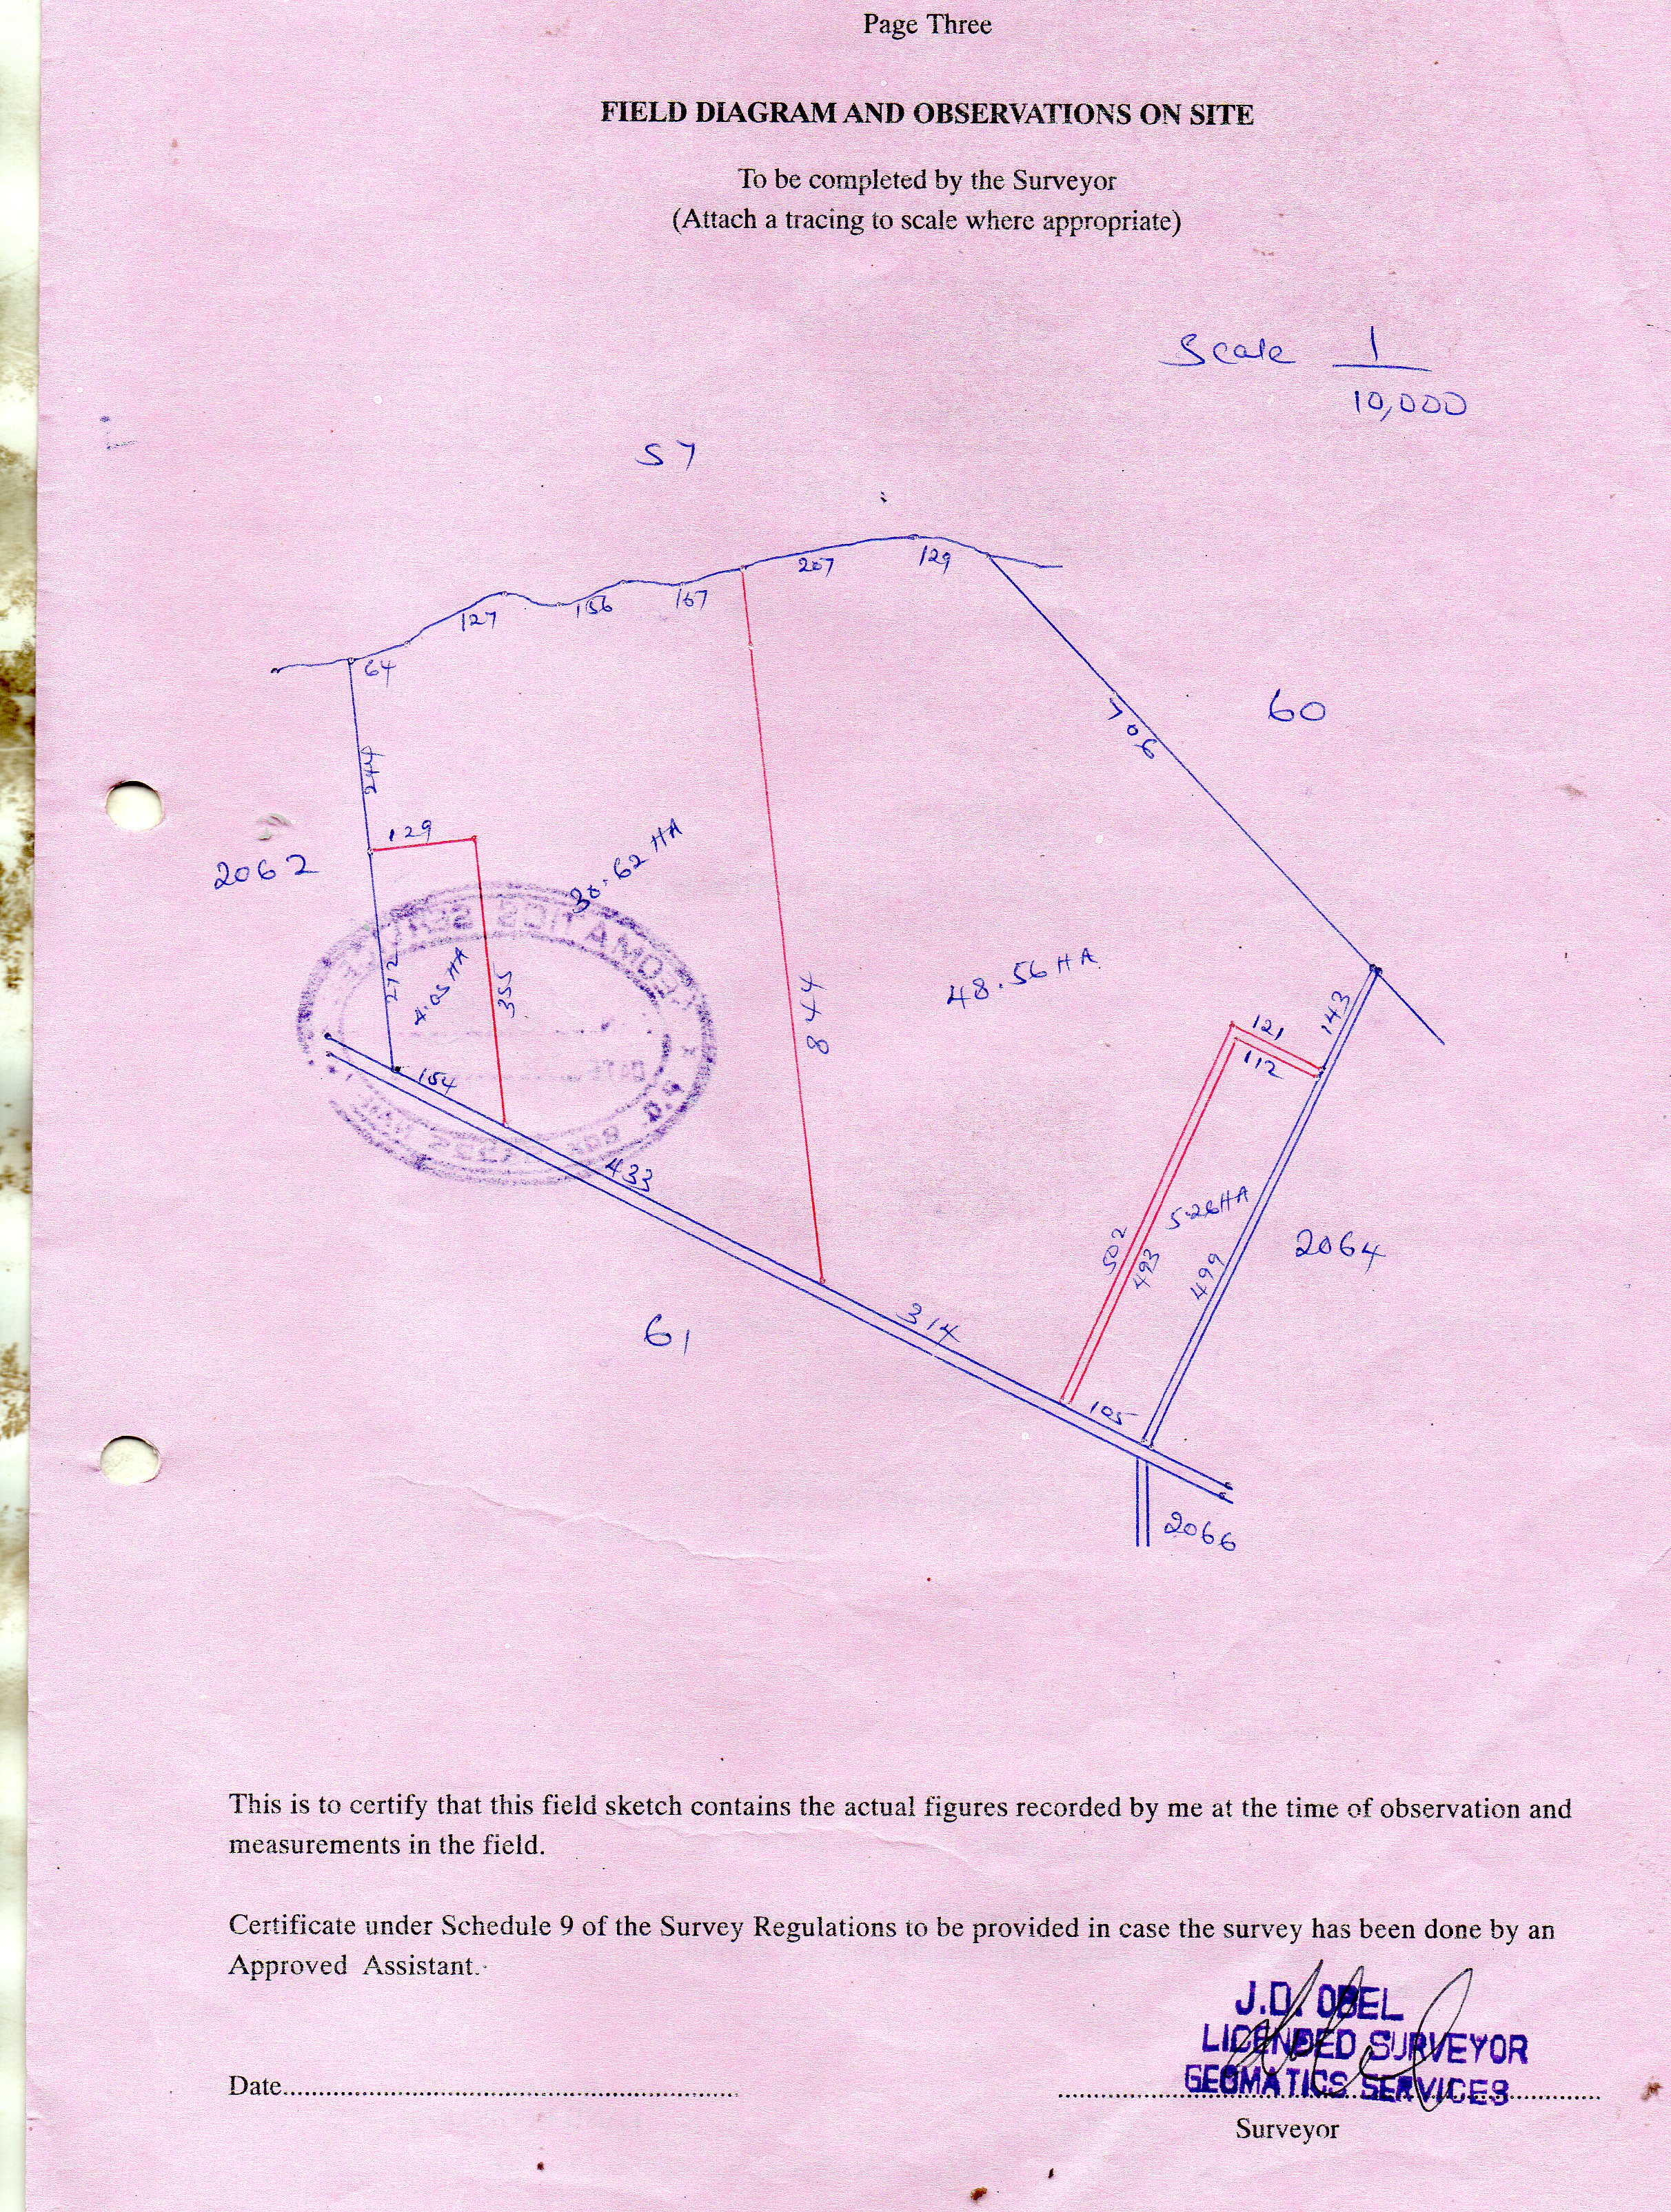 Page Three
FIELD DIAGRAM AND OBSERVATIONS ON SITE
To be completed by the Surveyor
(Attach a tracing to scale where appropriate)
Scale 1
10,000
57
207
129
127
156
167
64
706
60
244
129
2062
30.62 HA
4.05 HA
272
355
844
48.56 HA
143
121
112
154
433
502
493
5.26HA
499
2064
61
314
105
2066
This is to certify that this field sketch contains the actual figures recorded by me at the time of observation and
measurements in the field.
Certificate under Schedule 9 of the Survey Regulations to be provided in case the survey has been done by an
Approved Assistant.
J.D. OBEL
LICENDED SURVEYOR
GEOMATICS SERVICES
Date
Surveyor